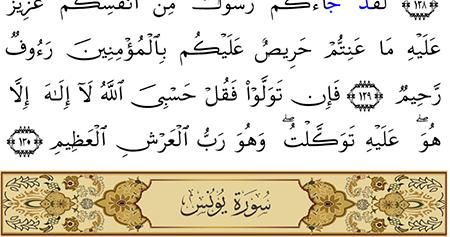 ١٢٨ لَقَدْ جَاءَكُمْ رَسُولٌ مِنْ أَنْفُسِكُمْ عَزِيزٌ
عَلَيْهِ مَا عَنِتُّمْ حَرِيصٌ عَلَيْكُم بِالْمُؤْمِنِينَ رَءُوفٌ
رَّحِيمٌ ١٢٩ فَإِن تَوَلَّوْاْ فَقُلْ حَسْبِىَ اللَّهُ لَآ إِلَٰهَ إِلَّا
هُوَۖ عَلَيْهِ تَوَكَّلْتُۖ وَهُوَ رَبُّ الْعَرْشِ الْعَظِيمِ ١٣٠
سُورَةُ يُونُسَ